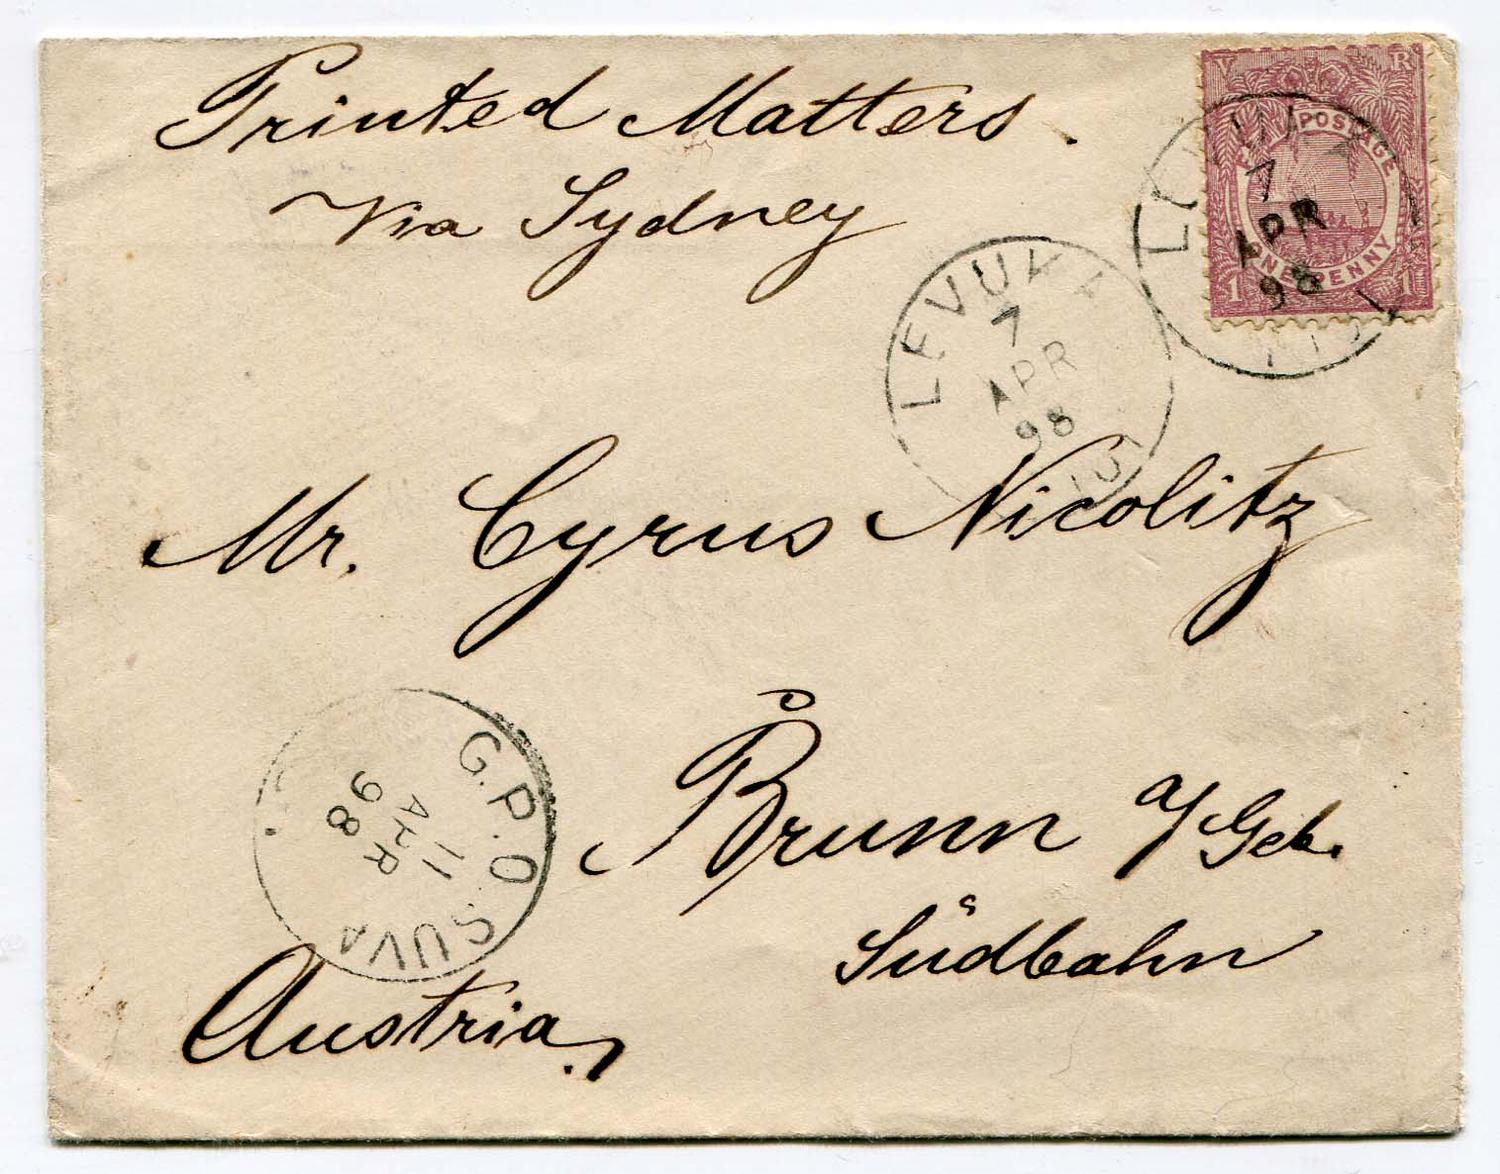 Printed Matters.
Via Sydney
V R
POSTAGE
ONE PENNY
1 1
LEVUKA
7
APR
98
FIJI
LEVUKA
7
APR
98
FIJI
Mr. Cyrus Nicolitz
Brunn a/Geb.
Südbahn
G.P.O SUVA
11
APR
98
Austria,